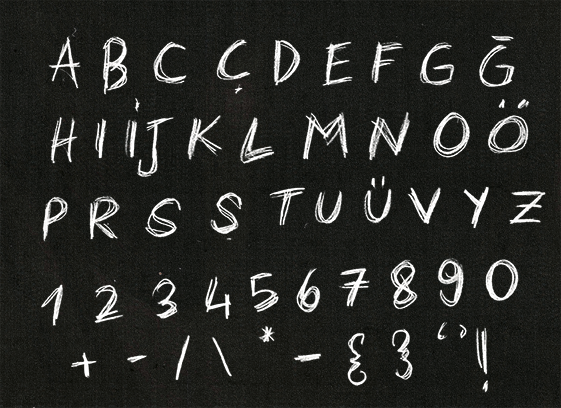 A B C Ç D E F G Ğ
H I İ J K L M N O Ö
P R S Ş T U Ü V Y Z
1 2 3 4 5 6 7 8 9 0
+ - / \ * - { } ‘ ’ !